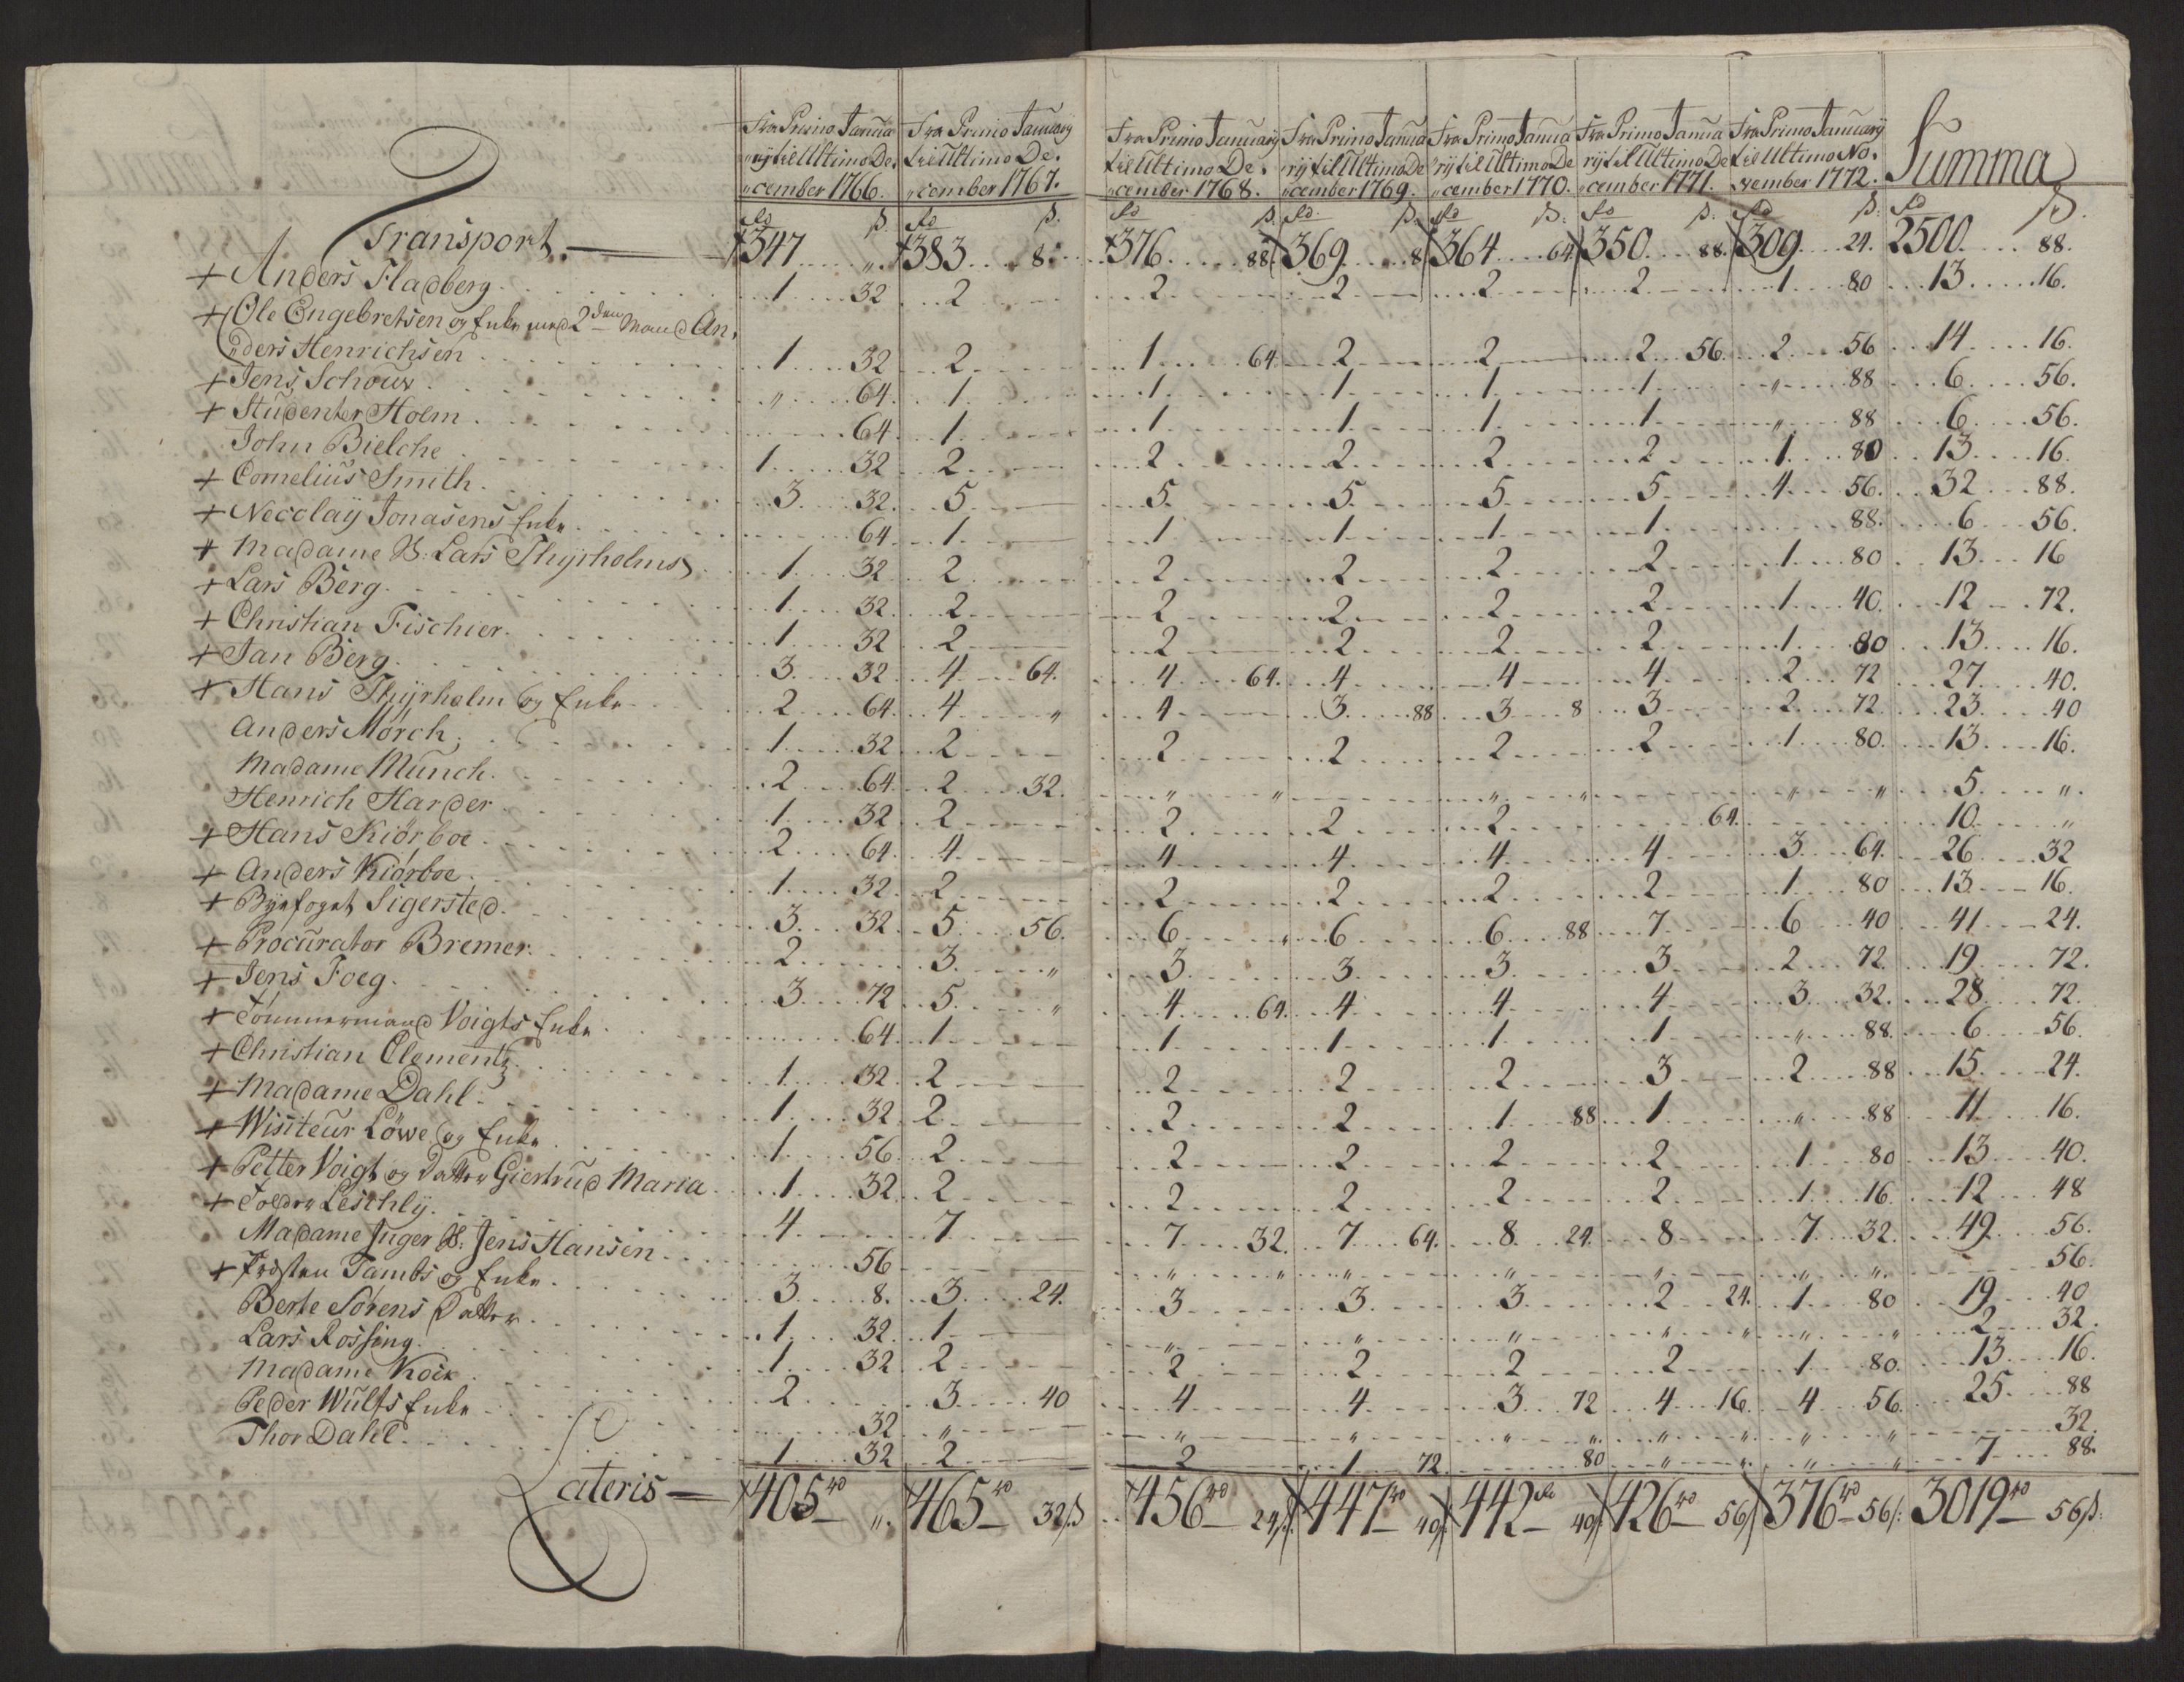 Fra Primo Janua„ Fra Primo January Fra Primo January Fra Primo Janua Fra Primo Janua Fra Primo Janua Fra Primo January Summa
„rij til Ultimo De„ til Ultimo De„ til Ultimo De„ „rij til Ultimo De „rij til Ultimo De rij til Ultimo De til Ultimo No„
„cember 1766. „cember 1767. „cember 1768. „cember 1769. „cember 1770. „cember 1771. vember 1772.
Rd ß. Rd ß. Rd ß. Rd. ß. Rd ß. Rd ß. Rd ß. Rd ß.
Transport. 347 „ 383 8 376 88 369 8 364 64 350 88. 309 24. 2500 88.
+ Anders Fladberg 1 32 2 2 2 2 2 1 80 13 16.
+ Ole Engebretsen og Enke med 2den Mand An„
„ders Henrichsen 1 32 2 1 64. 2 2 2 56. 2 56 14 16.
+ Jens Schouw „ 64. 1 1 1 1 1 „ 88 6 56.
+ Studenter Holm 64 1 1 1 1 1 „ 88 6 56.
John Bielche 1 32 2 2 2 2 2 1 80 13 16.
+ Cornelius Smith 3 32. 5 5 5 5 5 4 56. 32 88.
+ Necolaij Jonasens Enke 64 1 1 1 1 1 88. 6 56.
+ Madame S: Lars Thyrholms 1 32 2 2 2 2 2 1 80 13 16
+ Lars Berg 1 32. 2 2 2 2 2 1 40. 12 72.
+ Christian Fischier 1 32 2 2 2 2 2 1 80 13 16.
+ Jan Berg 3 32 4 64. 4 64. 4 4 4 2 72 27 40.
+ Hans Thyrholm og Enke 2 64. 4 „ 4 3 88 3 8 3 2 72. 23 40
Anders Mörch 1 32 2 2 2 2 2 1 80. 13 16.
Madame Munch 2 64 2 32. „ „ „ „ „ „ 5 „.
Henrich Harder 1 32 2 2 2 2 64. 10 „
+ Hans Kiörboe 2 64. 4 4 4 4 4 3 64. 26 32
+ Anders Kiörboe 1 32 2 2 2 2 2 1 80 13 16.
+ Byefoget Sigersted 3 32 5 56. 6 „ 6 6 88 7 6 40 41 24.
+ Procurator Bremer 2 3 „ 3 3 3 3 2 72 19 72.
+ Jens Foeg 3 72 5 „ 4 64. 4 4 4 3 32. 28 72.
+ Tömmermand Voigts Enke 64. 1 1 1 1 1 „ 88. 6 56.
+ Christian Clementz 1 32 2 2 2 2 3 2 88 15 24.
+ Madame Dahl 1 32 2 2 2 1 88 1 „ 88 11 16.
+ Wisiteur Löwe og Enke 1 56 2 2 2 2 2 1 80 13 40.
+ Petter Voigt og Datter Giertrud Maria 1 32 2 2 2 2 2 1 16. 12 48
+ Tolder Leschly 4 7 7 32. 7 64. 8 24. 8 7 32. 49 56.
Madame Inger S: Jens Hansen 56 „ „ „ „ „ „ „. 56.
+ Tambs og Enke 3 8. 3 24. 3 3 3 2 24. 1 80 19 40
Berte Sörens Datter 1 32. 1 „ „ „ „ „ „ „ 2 32.
Lars Rossing 1 32 2 2 2 2 2 1 80. 13 16.
Madame Kock 2 3 40 4 4 3 72 4 16. 4 56. 25 88
Peder Wulfs Enke 32 „ „ „ „ „. „ „ „ „ 32.
Thor Dahl 1 32 2 2 1 72 80 „ „ „ „ 7 88.
Lateris 405 rd „. 465 rd 32 ß 456 rd 24 ß. 447 rd 40 ß. 442 rd 40 ß 426 rd 56 ß 376 rd 56 ß: 3019 rd 56 ß: